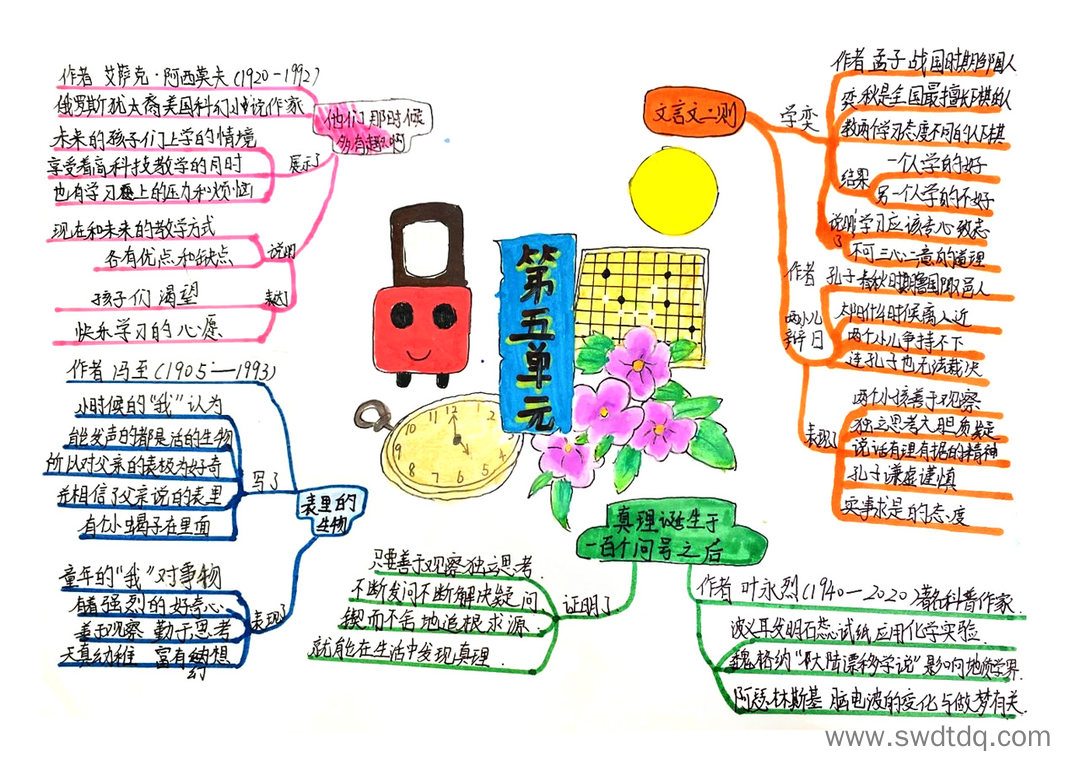 第五单元
他们那时候
多有趣啊
作者 艾萨克·阿西莫夫(1920-1992)
俄罗斯犹太裔美国科幻小说作家
展示了
未来的孩子们上学的情境
享受着高科技教学的同时
也有学习上的压力和烦恼
说明
现在和未来的教学方式
各有优点和缺点
表达
孩子们 渴望
快乐学习的心愿
表里的
生物
作者 冯至(1905—1993)
写了
小时候的"我"认为
能发声的都是活的生物
所以对父亲的表极为好奇
并相信了父亲说的表里
有个小蝎子在里面
表现了
童年的"我"对事物
有着强烈的好奇心
善于观察 勤于思考
天真幼稚 富有幻想
幻
文言文二则
学奕
作者 孟子 战国时期邹国人
奕秋是全国最擅长下棋的人
教两个学习态度不同的人下棋
结果
一个人学的好
另一个人学的不好
说明
了
学习应该专心致志
不可三心二意的道理
两小儿
辩日
作者 孔子 春秋时期鲁国陬邑人
太阳什么时候离人近
两个小儿争持不下
连孔子也无法裁决
表现了
两个小孩善于观察
独立思考大胆质疑
说话有理有据的精神
孔子谦虚谨慎
实事求是的态度
真理诞生于
一百个问号之后
证明了
只要善于观察独立思考
不断发问不断解决疑问
锲而不舍地追根求源
就能在生活中发现真理
作者 叶永烈(1940—2020)著名科普作家
波义耳发明石蕊试纸应用化学实验
魏格纳"大陆漂移学说"影响地质学界
阿瑟林斯基 脑电波的变化与做梦有关
12
11
10
9
8
7
6
5
4
3
2
www.swdtdq.com